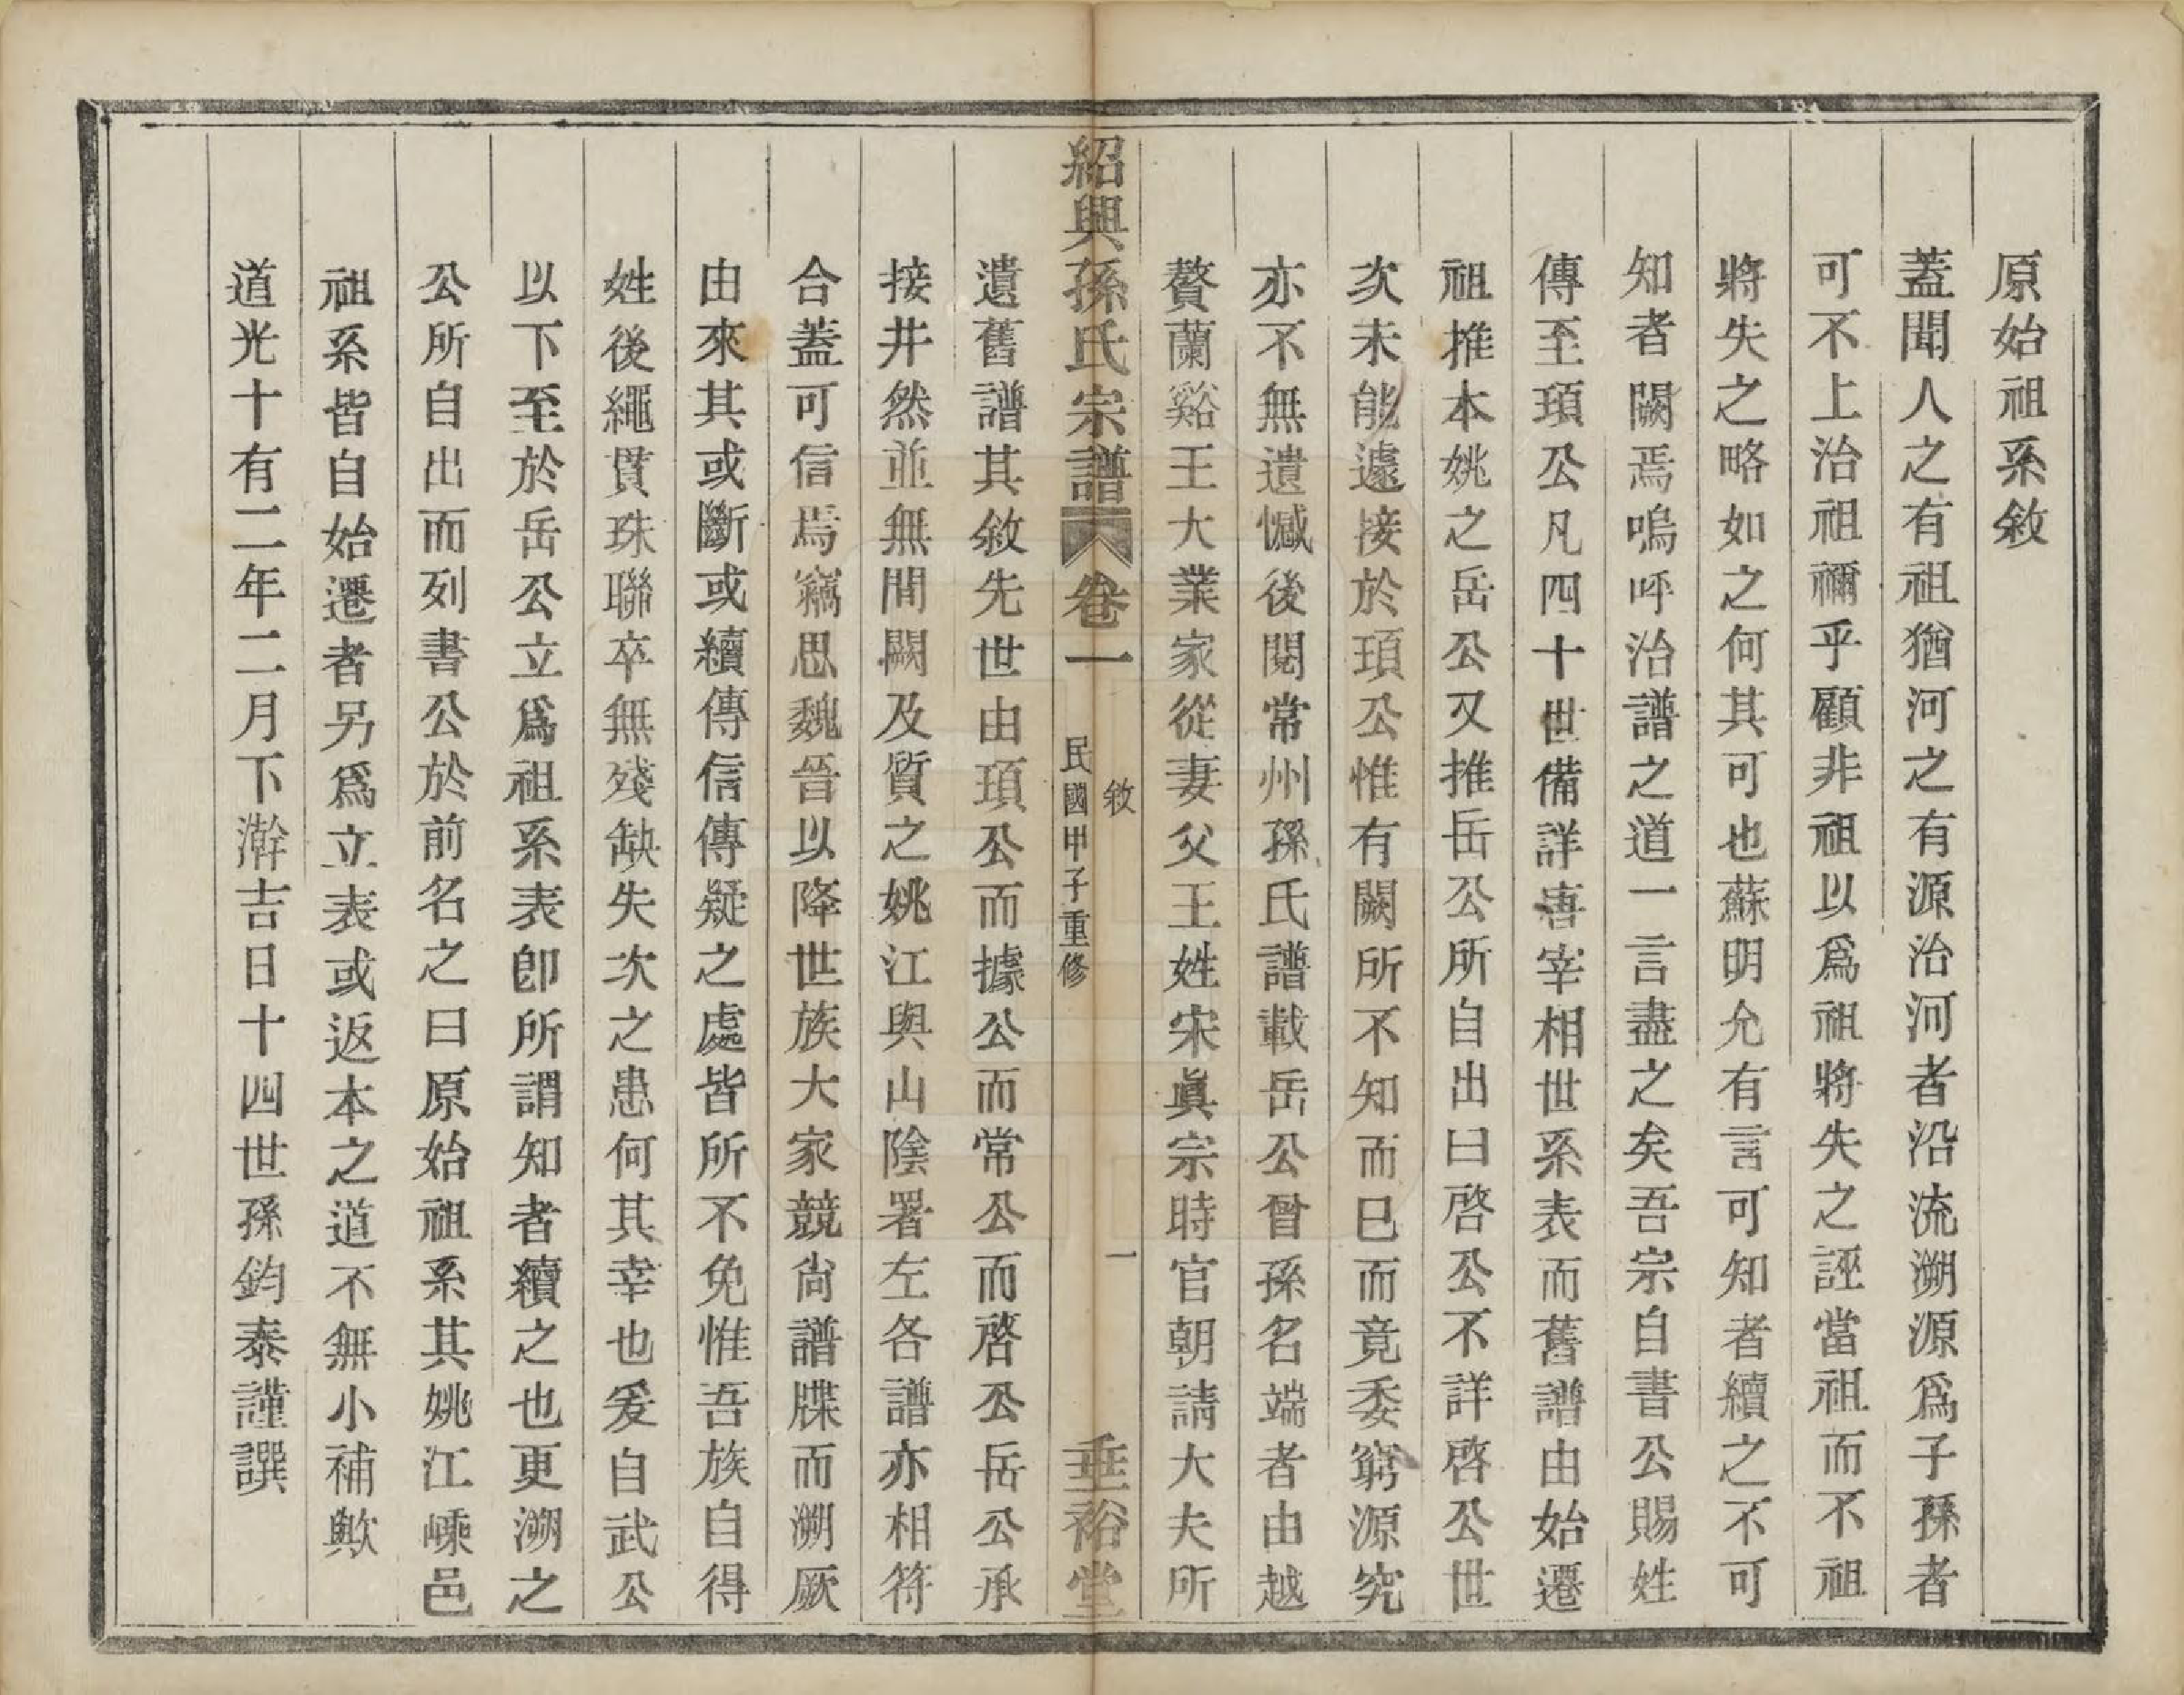 原始祖系敘
蓋聞人之有祖猶河之有源治河者沿流溯源爲子孫者
可不上治祖禰乎顧非祖以爲祖將失之誣當祖而不祖
將失之略如之何其可也蘇明允有言可知者續之不可
知者闕焉嗚呼治譜之道一言盡之矣吾宗自書公賜姓
傳至頊公凡四十世備詳唐宰相世系表而舊譜由始遷
祖推本姚之岳公又推岳公所自出曰啓公不詳啓公世
次未能遽接於頊公惟有闕所不知而已而竟委窮源究
亦不無遺憾後閱常州孫氏譜載岳公曾孫名端者由越
贅蘭谿王大業家從妻父王姓宋眞宗時官朝請大夫所
紹興孫氏宗譜 卷一 敘 民國甲子重修 一 垂裕堂
遺舊譜其敘先世由頊公而據公而常公而啓公岳公承
接井然並無間闕及質之姚江與山陰署左各譜亦相符
合蓋可信焉竊思魏晉以降世族大家競尙譜牒而溯厥
由來其或斷或續傳信傳疑之處皆所不免惟吾族自得
姓後繩貫珠聯卒無殘缺失次之患何其幸也爰自武公
以下至於岳公立爲祖系表卽所謂知者續之也更溯之
公所自出而列書公於前名之曰原始祖系其姚江嵊邑
祖系皆自始遷者另爲立表或返本之道不無小補歟
道光十有二年二月下澣吉日十四世孫鈞泰謹譔